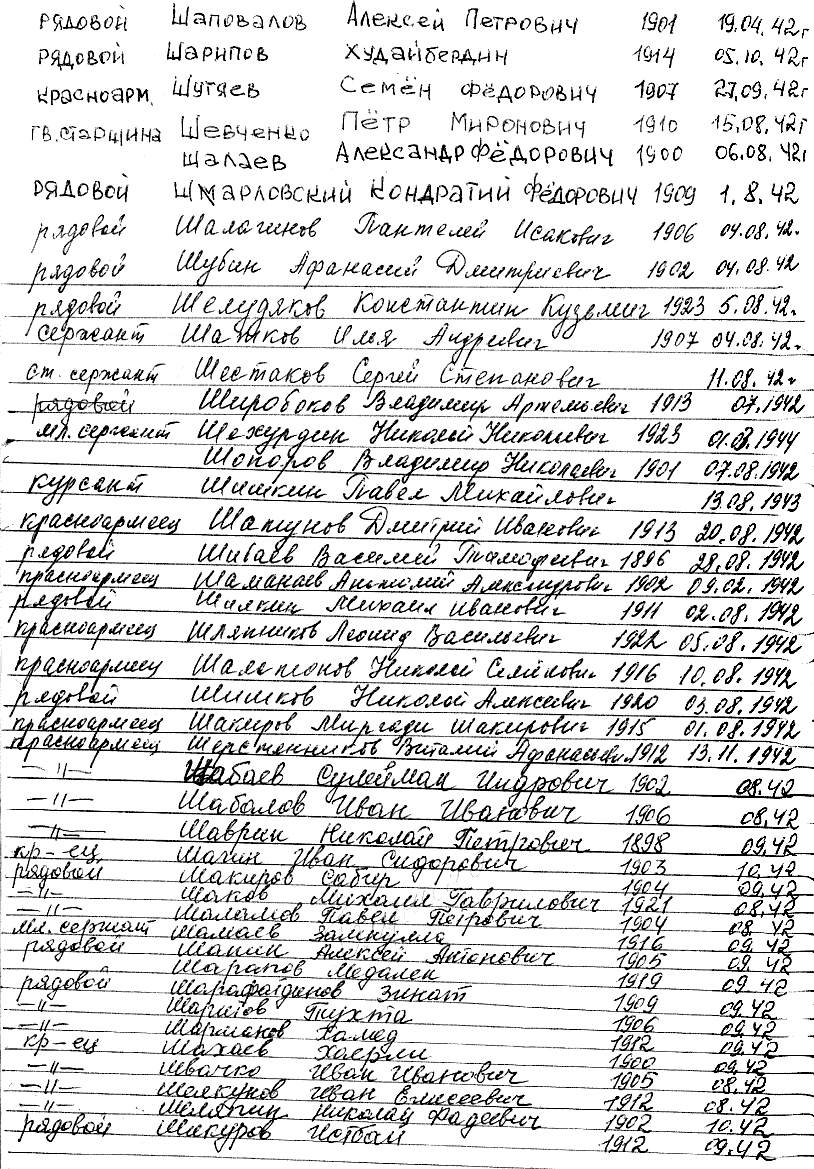 рядовой Шаповалов Алексей Петрович 1901 19.04.42г
рядовой Шарипов Худайбердин 1914 05.10.42г
красноарм. Шутяев Семён Фёдорович 1907 27.09.42г
гв.старшина Шевченко Пётр Миронович 1910 15.08.42г
Шалаев Александр Фёдорович 1900 06.08.42г
рядовой Шмарловский Кондратий Фёдорович 1909 1.8.42
рядовой Шалагинов Пантелей Исакович 1906 04.08.42г
рядовой Шубин Афанасий Дмитриевич 1902 04.08.42
рядовой Шелудяков Константин Кузьмич 1923 5.08.42г
сержант Шатков Илья Андреевич 1907 04.08.42г
ст. сержант Шестаков Сергей Степанович 11.08.42г
рядовой Широбоков Владимир Артемьевич 1913 07.1942
мл. сержант Шахурдин Николай Николаевич 1923 01.03.1944
Шопоров Владимир Николаевич 1901 07.08.1942
курсант Шишкин Павел Михайлович 13.08.1943
красноармеец Шатунов Дмитрий Иванович 1913 20.08.1942
рядовой Шибаев Василий Тимофеевич 1896 28.08.1942
красноармеец Шаманаев Анатолий Александрович 1902 09.02.1942
рядовой Шилкин Михаил Иванович 1911 02.08.1942
красноармеец Шляпников Леонид Васильевич 1922 05.08.1942
красноармеец Шалапонов Николай Семёнович 1916 10.08.1942
рядовой Шишков Николай Алексеевич 1920 03.08.1942
красноармеец Шакиров Миргади Шакирович 1915 01.08.1942
красноармеец Шерстенников Виталий Афанасьевич 1912 13.11.1942
—"— Шабаев Сулейман Индрович 1902 08.42
—"— Шабалов Иван Иванович 1906 08.42
—"— Шаврин Николай Петрович 1898 09.42
кр-ец Шагин Иван Сидорович 1903 10.42
рядовой Шакиров Сабир 1904 09.42
—"— Шаков Михаил Гаврилович 1921 08.42
—"— Шаламов Павел Петрович 1904 08.42
мл. сержант Шамаев Замкулла 1916 09.42
рядовой Шапин Алексей Антонович 1905 09.42
Шарапов Медален 1919 09.42
рядовой Шарафатдинов Зинат 1909 09.42
—"— Шарипов Тухта 1906 09.42
—"— Шарманов Хамед 1912 09.42
кр-ец Шахаев Хаерли 1900 09.42
—"— Швачко Иван Иванович 1905 08.42
—"— Шелкунов Иван Елисеевич 1912 08.42
—"— Шеляпин Николай Фадеевич 1902 10.42
рядовой Шикуров Истбай 1912 09.42